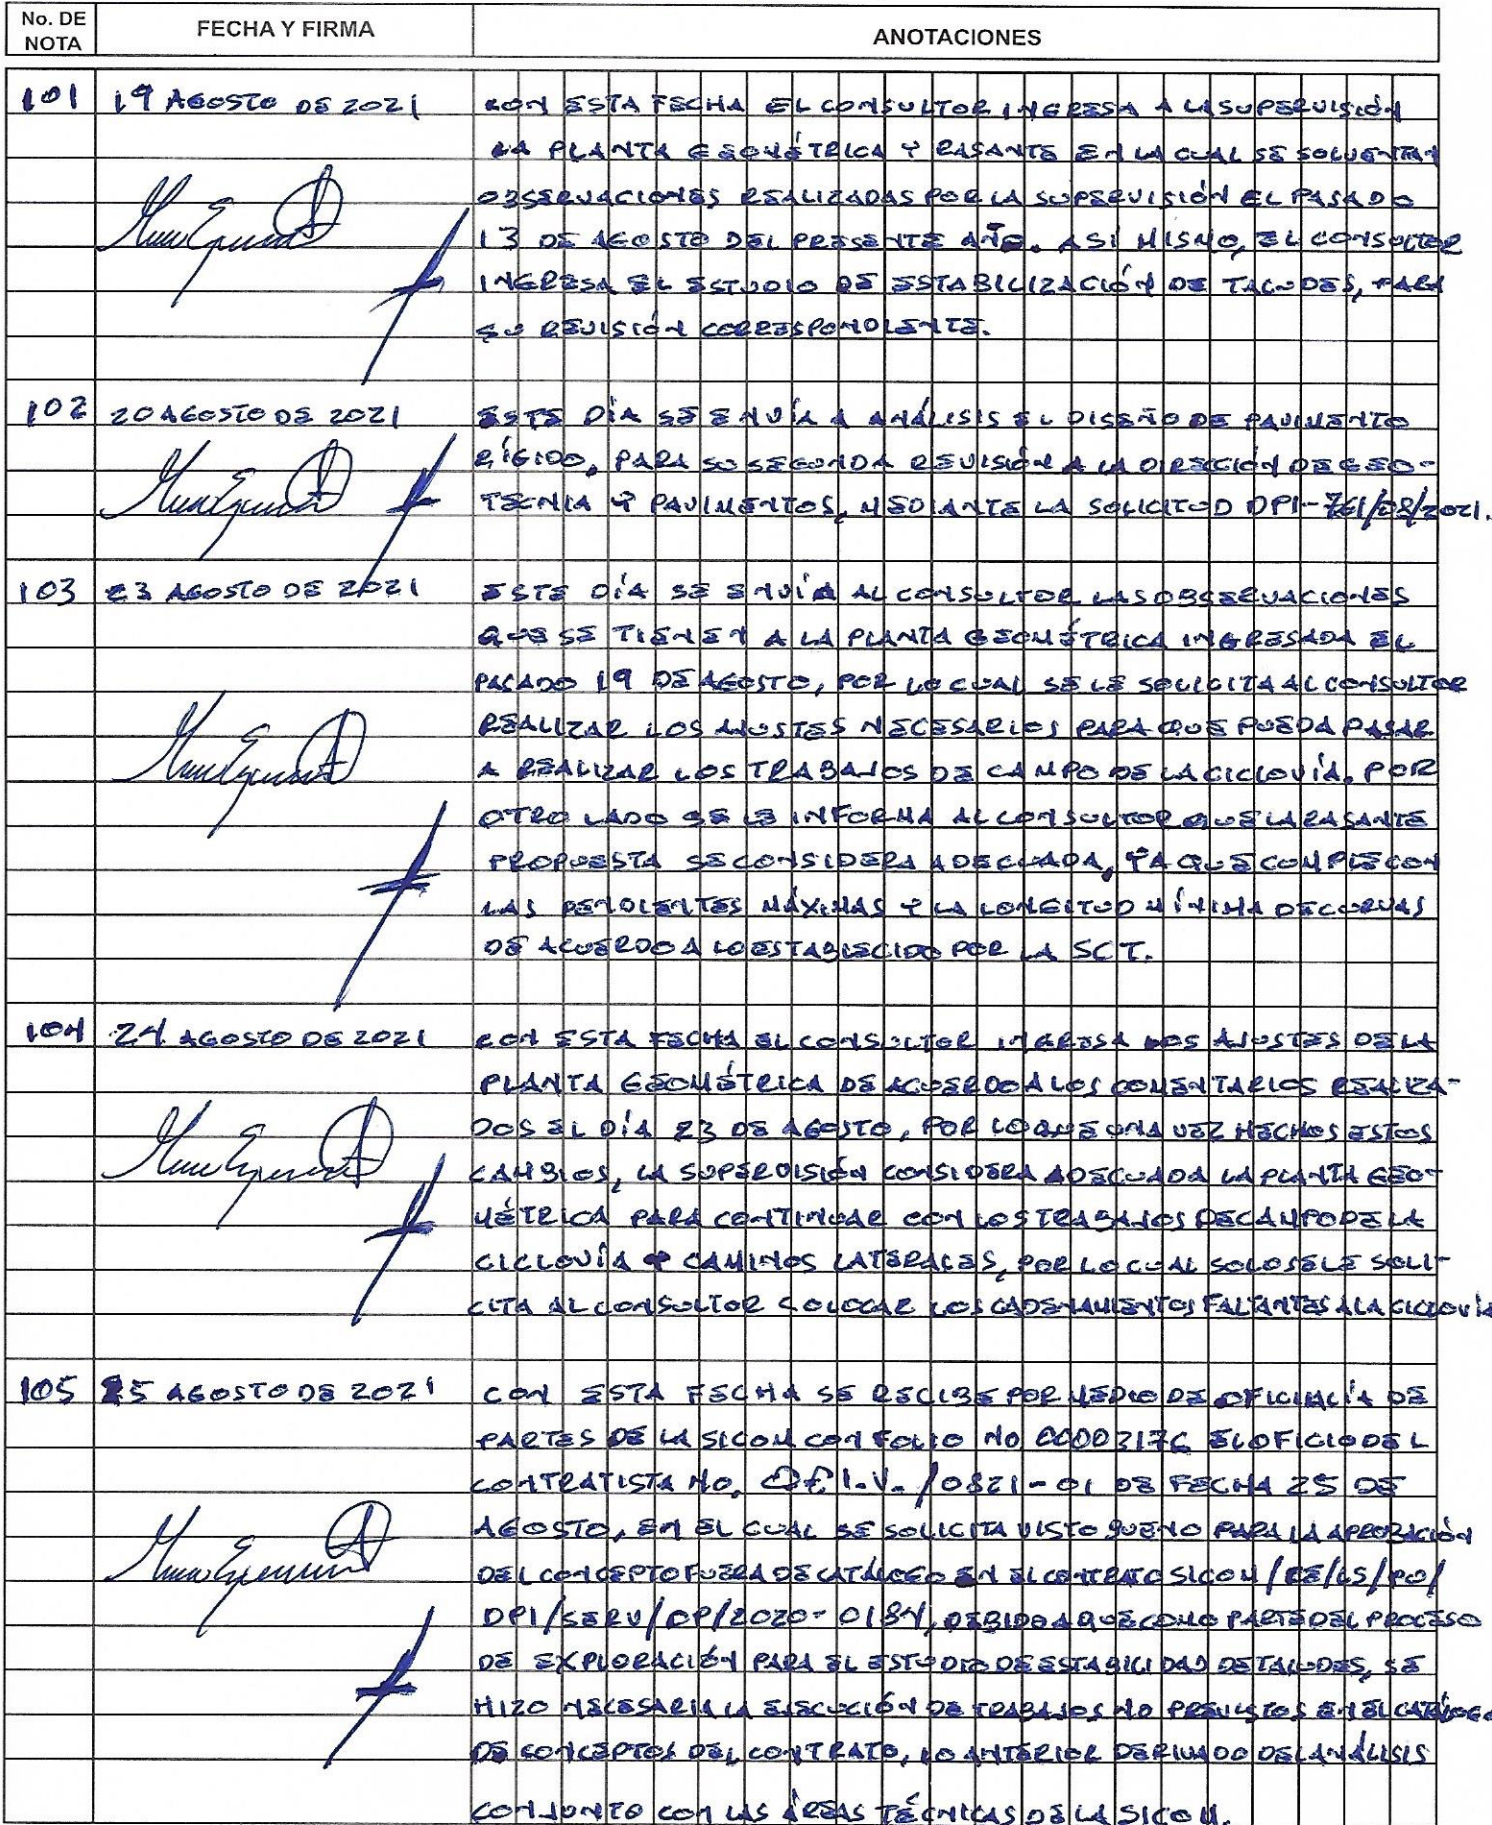 No. DE NOTA FECHA Y FIRMA ANOTACIONES
101 19 AGOSTO DE 2021 CON ESTA FECHA EL CONSULTOR INGRESA A LA SUPERVISIÓN
LA PLANTA GEOMÉTRICA Y RASANTE EN LA CUAL SE SOLVENTAN
OBSERVACIONES REALIZADAS POR LA SUPERVISIÓN EL PASADO
13 DE AGOSTO DEL PRESENTE AÑO. ASÍ MISMO, EL CONSULTOR
INGRESA EL ESTUDIO DE ESTABILIZACIÓN DE TALUDES, PARA
SU REVISIÓN CORRESPONDIENTE.
102 20 AGOSTO DE 2021 ESTE DÍA SE ENVÍA A ANÁLISIS EL DISEÑO DE PAVIMENTO
RÍGIDO, PARA SU SEGUNDA REVISIÓN A LA DIRECCIÓN DE GEO-
TECNIA Y PAVIMENTOS, MEDIANTE LA SOLICITUD DPI-761/08/2021.
103 23 AGOSTO DE 2021 ESTE DÍA SE ENVÍA AL CONSULTOR LAS OBSERVACIONES
QUE SE TIENEN A LA PLANTA GEOMÉTRICA INGRESADA EL
PASADO 19 DE AGOSTO, POR LO CUAL SE LE SOLICITA AL CONSULTOR
REALIZAR LOS AJUSTES NECESARIOS PARA QUE PUEDA PASAR
A REALIZAR LOS TRABAJOS DE CAMPO DE LA CICLOVÍA. POR
OTRO LADO SE LE INFORMA AL CONSULTOR QUE LA RASANTE
PROPUESTA SE CONSIDERA ADECUADA, YA QUE CUMPLE CON
LAS PENDIENTES MÁXIMAS Y LA LONGITUD MÍNIMA DE CURVAS
DE ACUERDO A LO ESTABLECIDO POR LA SCT.
104 24 AGOSTO DE 2021 CON ESTA FECHA EL CONSULTOR INGRESA LOS AJUSTES DE LA
PLANTA GEOMÉTRICA DE ACUERDO A LOS COMENTARIOS REALIZA-
DOS EL DÍA 23 DE AGOSTO, POR LO QUE UNA VEZ HECHOS ESTOS
CAMBIOS, LA SUPERVISIÓN CONSIDERA ADECUADA LA PLANTA GEO-
MÉTRICA PARA CONTINUAR CON LOS TRABAJOS DE CAMPO DE LA
CICLOVÍA Y CAMINOS LATERALES, POR LO CUAL SOLO SE LE SOLI-
CITA AL CONSULTOR COLOCAR LOS CADENAMIENTOS FALTANTES A LA CICLOVÍA
105 25 AGOSTO DE 2021 CON ESTA FECHA SE RECIBE POR MEDIO DE OFICIALÍA DE
PARTES DE LA SICOM CON FOLIO NO 00003176 EL OFICIO DEL
CONTRATISTA NO. I.V./0821-01 DE FECHA 25 DE
AGOSTO, EN EL CUAL SE SOLICITA VISTO BUENO PARA LA APROBACIÓN
DEL CONCEPTO FUERA DE CATÁLOGO EN EL CONTRATO SICOM/RE/LS/PO/
DPI/SERV/OP/2020-0184, DEBIDO A QUE COMO PARTE DEL PROCESO
DE EXPLORACIÓN PARA EL ESTUDIO DE ESTABILIDAD DE TALUDES, SE
HIZO NECESARIA LA EJECUCIÓN DE TRABAJOS NO PREVISTOS EN EL CATÁLOGO
DE CONCEPTOS DEL CONTRATO, LO ANTERIOR DERIVADO DEL ANÁLISIS
CONJUNTO CON LAS ÁREAS TÉCNICAS DE LA SICOM.